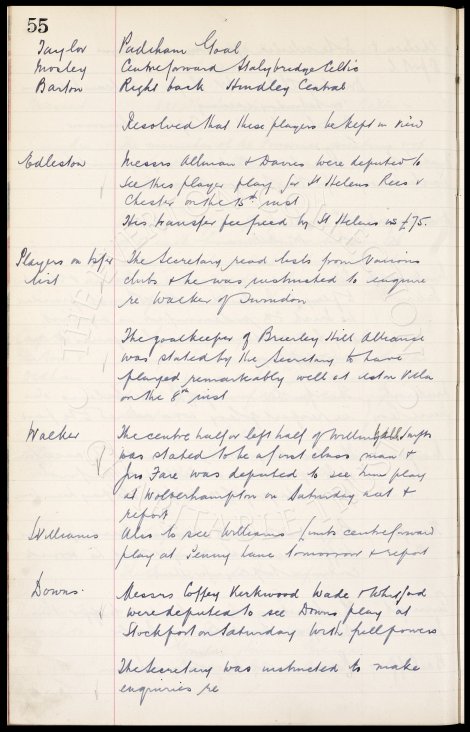 55
Taylor Padiham Goal
Morley Centre forward Stalybridge Celtic
Barton Right back Hindley Central
Resolved that these players be kept in view
Edleston Messrs Allman & Davies were deputed to
see this player play for St Helens Recs v
Chester on the 15th inst
His transfer fee fixed by St Helens is £75.
Players on tsfer The Secretary read lists from various
list clubs & he was instructed to enquire
re Walker of Swindon
The goalkeeper of Brierley Hill Alliance
was stated by the Secretary to have
played remarkably well at Aston Villa
on the 8th inst
Walker The centre half or left half of Willingdall
was stated to be a first class man &
Jno Fare was deputed to see him play
at Wolverhampton on Saturday next &
report
Williams Also to see Williams centre forward
play at Penny Lane tomorrow & report
Downs. Messrs Coffey Kirkwood Wade & Whitford
were deputed to see Downs play at
Stockport on Saturday with full powers
The Secretary was instructed to make
enquiries re